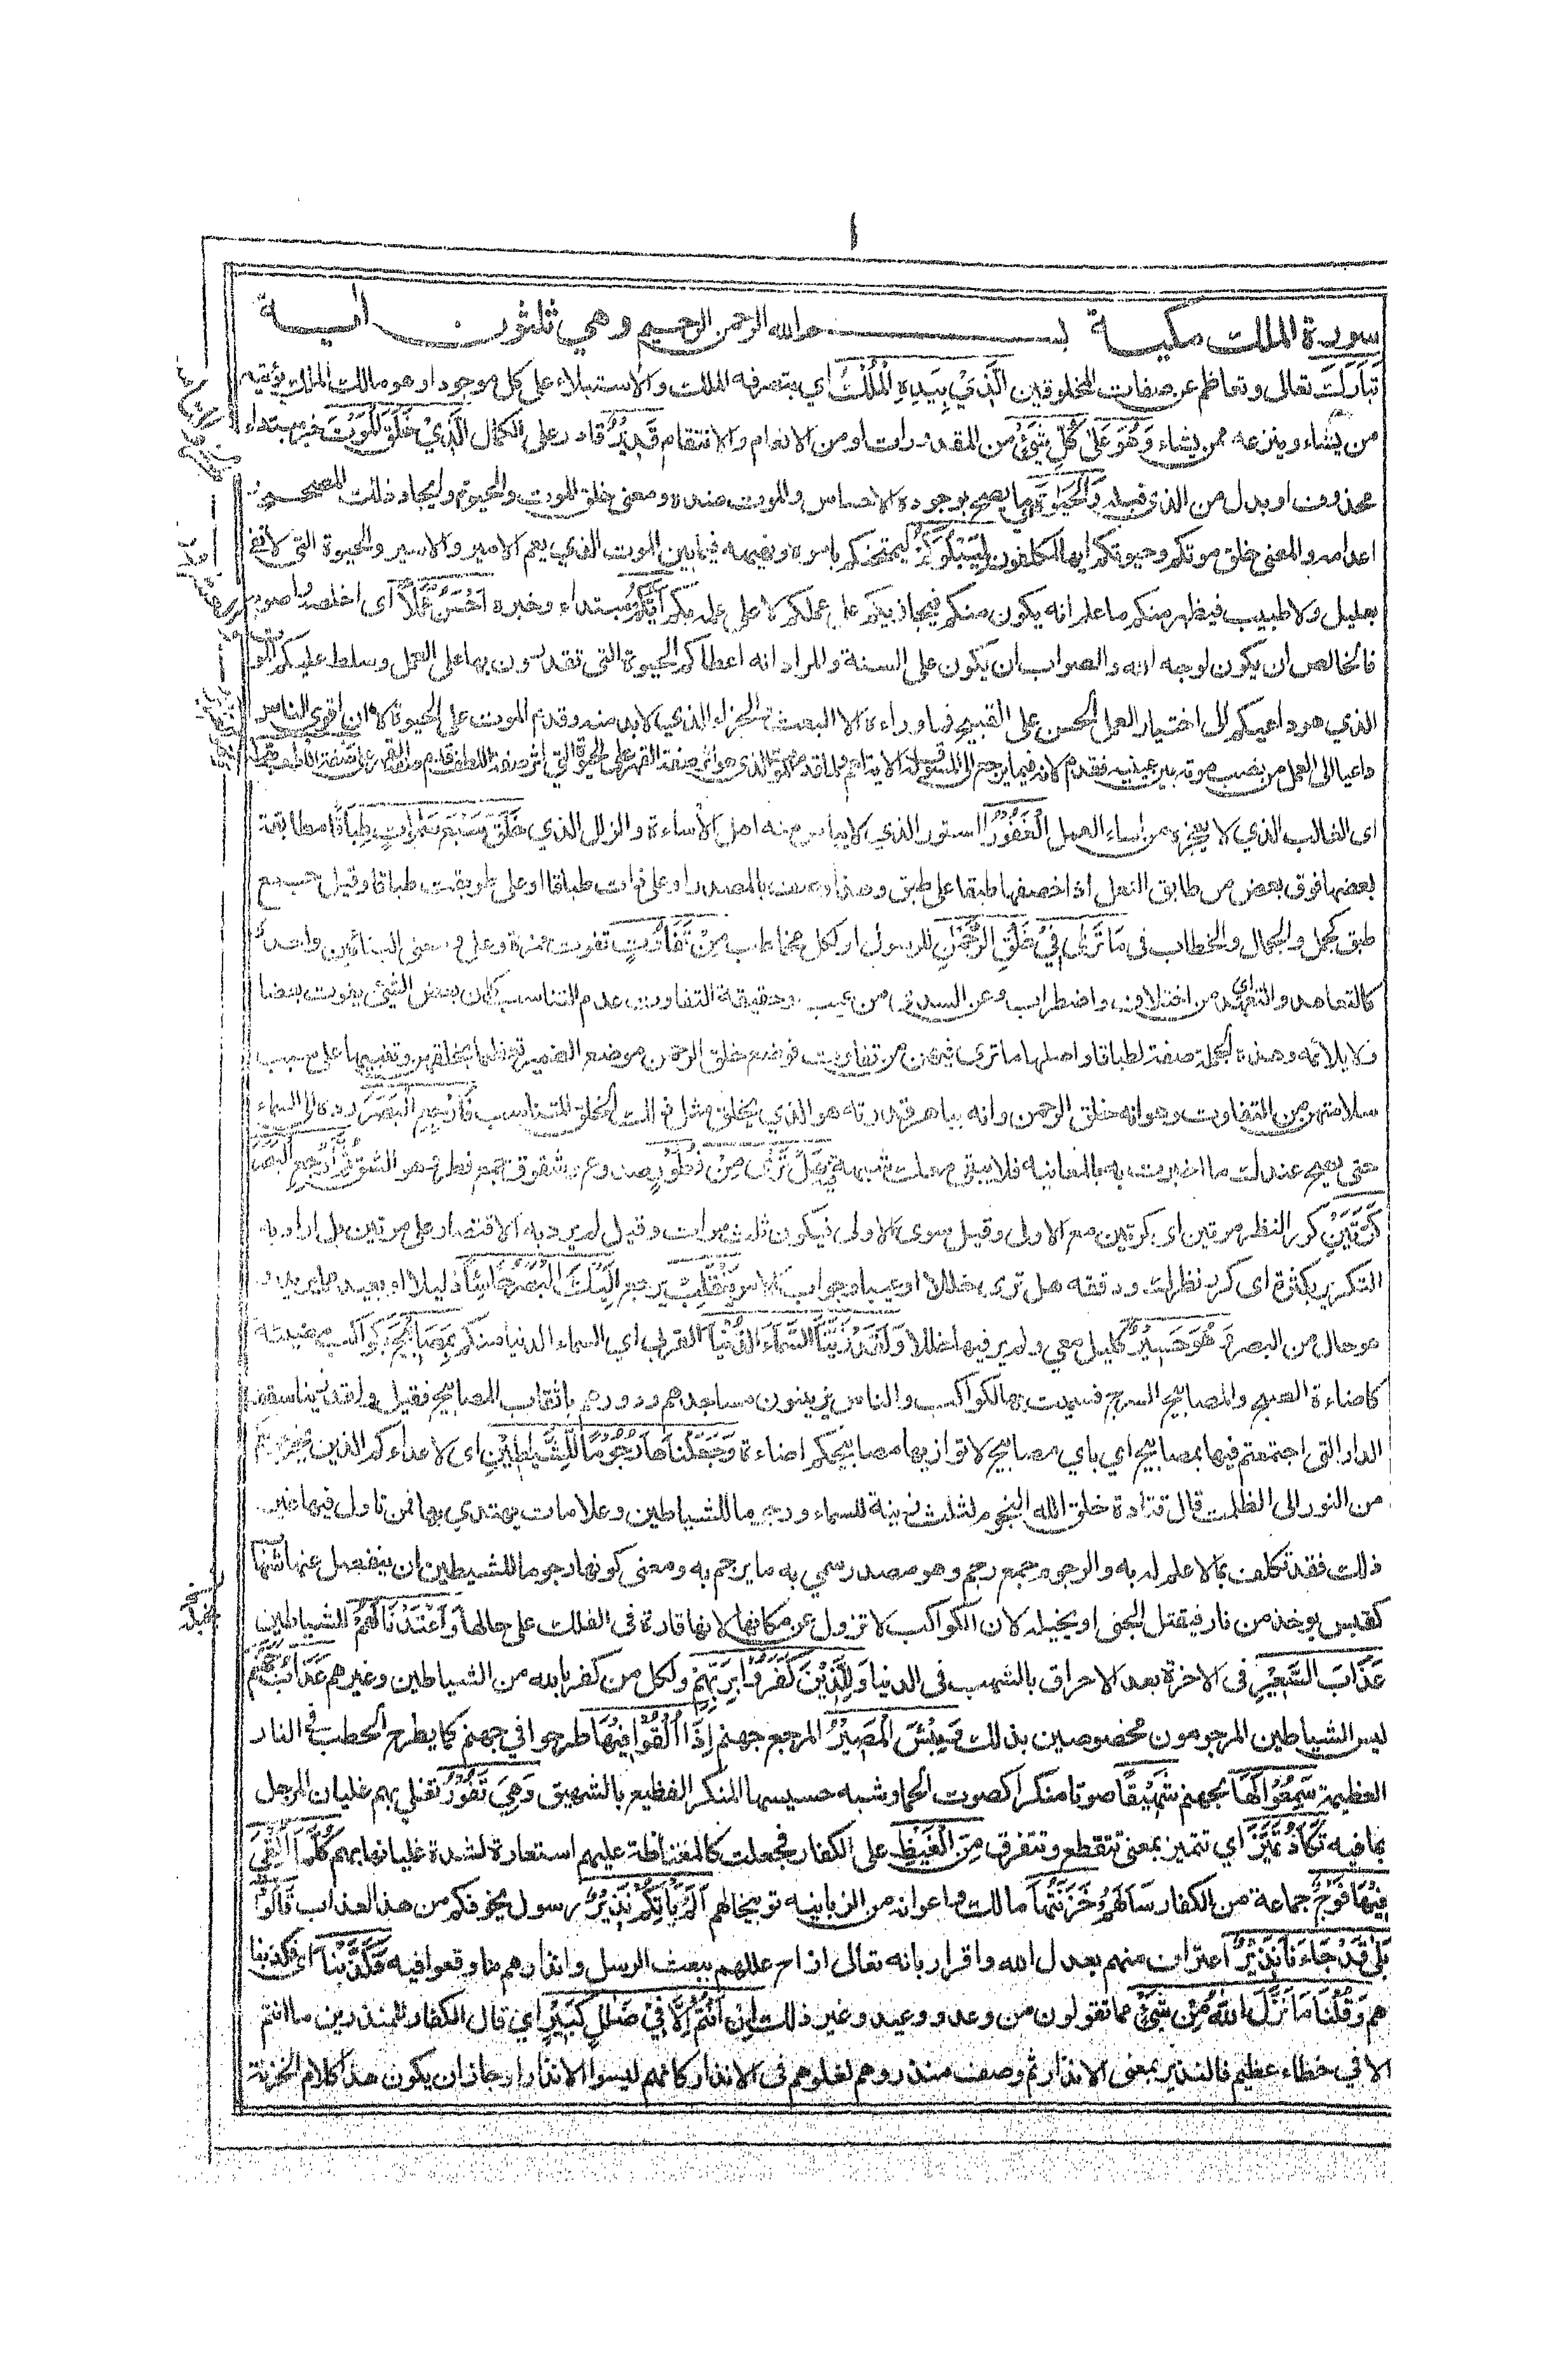 ١
سورة الملك مكية بسم الله الرحمن الرحيم وهي ثلثون اية
تَبَارَكَ تعالى وتعاظم عن صفات المخلوقين الَّذِيْ بِيَدِهِ الْمُلْكُ اي بتصرفه الملك والاستيلاء على كل موجود او هو مالك الملك يؤتيه
من يشاء وينزعه ممن يشاء وَهُوَ عَلىٰ كُلِّ شَيْءٍ من المقدورات او من الانعام والانتقام قَدِيْرٌ قادر على الكمال الَّذِيْ خَلَقَ الْمَوْتَ خبر مبتداء
محذوف او بدل من الذي قبله وَالْحَيٰوةَ هي ما يصح بوجوده الاحساس والموت ضده ومعنى خلق الموت والحيوة وايجاد ذلك المصحح و
اعدامه والمعنى خلق موتكم وحيوتكم ايها المكلفون لِيَبْلُوَكُمْ ليمتحنكم بامره ونهيه فيما بين الموت الذي يعم الامير والاسير والحيوة التي لا تفي
بعليل ولا طبيب فيظهر منكم ما علم انه يكون منكم فيجازيكم على عملكم لا على علمه بكم اَيُّكُمْ مبتداء وخبره اَحْسَنُ عَمَلًا اى اخلصه واصوبه
فالخالص ان يكون لوجه الله والصواب ان يكون على السنة والمراد انه اعطاكم الحيوة التي تقدرون بها على العمل وسلط عليكم الموت
الذي هو داعيكم الى اختيار العمل الحسن على القبيح فما وراءه الا البعث والجزاء الذي لا بد منه وقدم الموت على الحيوة لان اقوى الناس
داعيا الى العمل من نصب موته بين عينيه فقدم لانه فيما يرجع الى المسوق له الاية اهم ولما قدم الموت الذي هو اثر صفة القهر على الحيوة التي اثر صفة اللطف قدم صفة القهر على صفة اللطف بقوله
اى الغالب الذي لا يعجزه من اساء العمل الْغَفُوْرُ الستور الذي لا ييأس منه اهل الاساءة والزلل الذي خَلَقَ سَبْعَ سَمٰوٰتٍ طِبَاقًا مطابقة
بعضها فوق بعض من طابق النعل اذا خصفها طبقا على طبق وهذا وصف بالمصدر او على ذات طباقا او على طوبقت طباقا وقيل جمع
طبق كجمل والجمال والخطاب في مَا تَرٰى فِيْ خَلْقِ الرَّحْمٰنِ للرسول او لكل مخاطب مِنْ تَفَاوُتٍ تفوت حمزة وعلي ومعنى البنائين واحد
كالتعاهد والتعهد اي من اختلاف واضطراب وعن السدي من عيب وحقيقة التفاوت عدم التناسب كان بعض الشيء يفوت بعضا
ولا يلائمه وهذه الجملة صفة لطباقا واصلها ما ترى فيهن من تفاوت فوضع خلق الرحمن موضع الضمير تعظيما لخلقهن وتنبيها على سبب
سلامتهن من التفاوت وهو انه خلق الرحمن وانه بباهر قدرته هو الذي يخلق مثل ذلك الخلق المتناسب فَارْجِعِ الْبَصَرَ رده الى السماء
حتى يصح عندك ما اخبرت به بالمعاينة فلا يبقى معك شبهة فيه هَلْ تَرٰى مِنْ فُطُوْرٍ صدوع وشقوق جمع فطر وهو الشق ثُمَّ ارْجِعِ الْبَصَرَ
كَرَّتَيْنِ كرر النظر مرتين اى كرتين مع الاولى وقيل سوى الاولى فيكون ثلث مرات وقيل لم يرد به الاقتصار على مرتين بل اراد به
التكرير بكثرة اى كرر نظرك ودققه هل ترى خللا او عيبا وجواب الامر يَنْقَلِبْ يرجع اِلَيْكَ الْبَصَرُ خَاسِئًا ذليلا او بعيدا مما يريد و
هو حال من البصر وَهُوَ حَسِيْرٌ كليل معي ولم ير فيها خللا وَلَقَدْ زَيَّنَّا السَّمَاءَ الدُّنْيَا القربى اي السماء الدنيا منكم بِمَصَابِيْحَ بكواكب مضيئة
كاضاءة الصبح والمصابيح السرج فسميت بها الكواكب والناس يزينون مساجدهم ودورهم باثقاب المصابيح فقيل ولقد زينا سقف
الدار التي اجتمعتم فيها بمصابيح اي باي مصابيح لا توازيها مصابيحكم اضاءة وَجَعَلْنٰهَا رُجُوْمًا لِّلشَّيَاطِيْنِ اى لاعداءكم الذين يخرجونكم
من النور الى الظلمت قال قتادة خلق الله النجوم لثلث زينة للسماء ورجوما للشياطين وعلامات يهتدي بها فمن تاول فيها غير
ذلك فقد تكلف بما لا علم له به والرجوم جمع رجم وهو مصدر سمي به ما يرجم به ومعنى كونها رجوما للشيطين ان ينفصل عنها شهاب
كقبس يوخذ من نار فيقتل الجني او يخبله لان الكواكب لا تزول عن مكانها لانها قارة في الفلك على حالها وَاَعْتَدْنَا لَهُمْ للشياطين
عَذَابَ السَّعِيْرِ في الاخرة بعد الاحراق بالشهب في الدنيا وَلِلَّذِيْنَ كَفَرُوْا بِرَبِّهِمْ ولكل من كفر بالله من الشياطين وغيرهم عَذَابُ جَهَنَّمَ
ليس الشياطين المرجومون مخصوصين بذلك وَبِئْسَ الْمَصِيْرُ المرجع جهنم اِذَا اُلْقُوْا فِيْهَا طرحوا في جهنم كما يطرح الحطب في النار
العظيمة سَمِعُوْا لَهَا لجهنم شَهِيْقًا صوتا منكرا كصوت الحمار شبه حسيسها المنكر الفظيع بالشهيق وَهِيَ تَفُوْرُ تغلي بهم غليان المرجل
بما فيه تَكَادُ تَمَيَّزُ اي تتميز بمعنى تتقطع وتتفرق مِنَ الْغَيْظِ على الكفار فجعلت كالمغتاظة عليهم استعارة لشدة غليانها بهم كُلَّمَا اُلْقِيَ
فِيْهَا فَوْجٌ جماعة من الكفار سَاَلَهُمْ خَزَنَتُهَا مالك واعوانه من الزبانية توبيخا لهم اَلَمْ يَاْتِكُمْ نَذِيْرٌ رسول يخوفكم من هذا العذاب قَالُوْا
بَلٰى قَدْ جَاءَنَا نَذِيْرٌ اعتراف منهم بعدل الله واقرار بانه تعالى ازاح عللهم ببعث الرسل وانذارهم مما وقعوا فيه فَكَذَّبْنَا اى فكذبنا
هم وَقُلْنَا مَا نَزَّلَ اللهُ مِنْ شَيْءٍ مما تقولون من وعد ووعيد وغير ذلك اِنْ اَنْتُمْ اِلَّا فِيْ ضَلٰلٍ كَبِيْرٍ اي قال الكفار للمنذرين ما انتم
الا في خطاء عظيم فالنذير بمعنى الانذار ثم وصف منذروهم لغلوهم في الانذار كانهم ليسوا الا انذارا وجاز ان يكون هذا كلام الخزنة